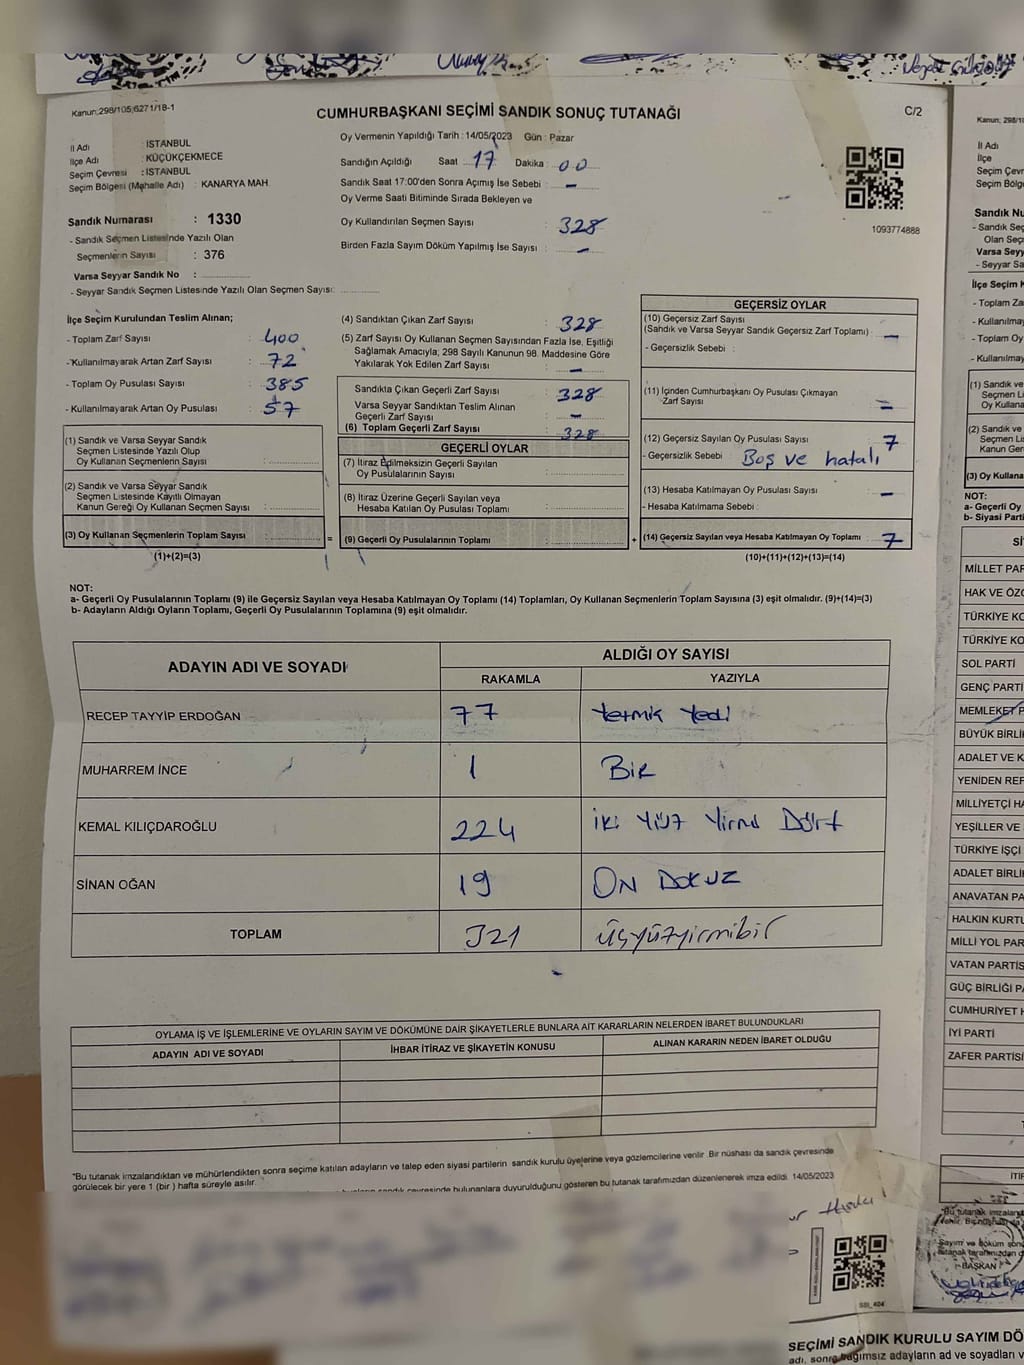 Kanun:298/105,6271/18-1
CUMHURBAŞKANI SEÇİMİ SANDIK SONUÇ TUTANAĞI
C/2
İl Adı : İSTANBUL
İlçe Adı : KÜÇÜKÇEKMECE
Seçim Çevresi : İSTANBUL
Seçim Bölgesi (Mahalle Adı) : KANARYA MAH.
Sandık Numarası : 1330
- Sandık Seçmen Listesinde Yazılı Olan
Seçmenlerin Sayısı : 376
Varsa Seyyar Sandık No :
- Seyyar Sandık Seçmen Listesinde Yazılı Olan Seçmen Sayısı:
Oy Vermenin Yapıldığı Tarih : 14/05/2023 Gün : Pazar
Sandığın Açıldığı Saat : 17 Dakika : 00
Sandık Saat 17:00'den Sonra Açımış İse Sebebi : -
Oy Verme Saati Bitiminde Sırada Bekleyen ve
Oy Kullandırılan Seçmen Sayısı : 328
Birden Fazla Sayım Döküm Yapılmış İse Sayısı : -
1093774888
İlçe Seçim Kurulundan Teslim Alınan;
- Toplam Zarf Sayısı : 400
-Kullanılmayarak Artan Zarf Sayısı : 72
- Toplam Oy Pusulası Sayısı : 385
- Kullanılmayarak Artan Oy Pusulası : 57
(1) Sandık ve Varsa Seyyar Sandık
Seçmen Listesinde Yazılı Olup
Oy Kullanan Seçmenlerin Sayısı :
(2) Sandık ve Varsa Seyyar Sandık
Seçmen Listesinde Kayıtlı Olmayan
Kanun Gereği Oy Kullanan Seçmen Sayısı :
(3) Oy Kullanan Seçmenlerin Toplam Sayısı :
(1)+(2)=(3)
(4) Sandıktan Çıkan Zarf Sayısı : 328
(5) Zarf Sayısı Oy Kullanan Seçmen Sayısından Fazla İse, Eşitliği
Sağlamak Amacıyla, 298 Sayılı Kanunun 98. Maddesine Göre
Yakılarak Yok Edilen Zarf Sayısı : -
Sandıkta Çıkan Geçerli Zarf Sayısı : 328
Varsa Seyyar Sandıktan Teslim Alınan
Geçerli Zarf Sayısı : -
(6) Toplam Geçerli Zarf Sayısı : 328
GEÇERLİ OYLAR
(7) İtiraz Edilmeksizin Geçerli Sayılan
Oy Pusulalarının Sayısı :
(8) İtiraz Üzerine Geçerli Sayılan veya
Hesaba Katılan Oy Pusulası Toplamı :
= (9) Geçerli Oy Pusulalarının Toplamı :
GEÇERSİZ OYLAR
(10) Geçersiz Zarf Sayısı
(Sandık ve Varsa Seyyar Sandık Geçersiz Zarf Toplamı) : -
- Geçersizlik Sebebi :
(11) İçinden Cumhurbaşkanı Oy Pusulası Çıkmayan
Zarf Sayısı : -
(12) Geçersiz Sayılan Oy Pusulası Sayısı : 7
- Geçersizlik Sebebi : Boş ve hatalı
(13) Hesaba Katılmayan Oy Pusulası Sayısı : -
- Hesaba Katılmama Sebebi :
+ (14) Geçersiz Sayılan veya Hesaba Katılmayan Oy Toplamı : 7
(10)+(11)+(12)+(13)=(14)
NOT:
a- Geçerli Oy Pusulalarının Toplamı (9) ile Geçersiz Sayılan veya Hesaba Katılmayan Oy Toplamı (14) Toplamları, Oy Kullanan Seçmenlerin Toplam Sayısına (3) eşit olmalıdır. (9)+(14)=(3)
b- Adayların Aldığı Oyların Toplamı, Geçerli Oy Pusulalarının Toplamına (9) eşit olmalıdır.
ADAYIN ADI VE SOYADI
ALDIĞI OY SAYISI
RAKAMLA YAZIYLA
RECEP TAYYİP ERDOĞAN 77 Yetmik Yedi
MUHARREM İNCE 1 BİR
KEMAL KILIÇDAROĞLU 224 iki Yüz Yirmi Dört
SİNAN OĞAN 19 ON DOKUZ
TOPLAM 321 üçyüzyirmibir
OYLAMA İŞ VE İŞLEMLERİNE VE OYLARIN SAYIM VE DÖKÜMÜNE DAİR ŞİKAYETLERLE BUNLARA AİT KARARLARIN NELERDEN İBARET BULUNDUKLARI
ADAYIN ADI VE SOYADI İHBAR İTİRAZ VE ŞİKAYETİN KONUSU ALINAN KARARIN NEDEN İBARET OLDUĞU
*Bu tutanak imzalandıktan ve mühürlendikten sonra seçime katılan adayların ve talep eden siyasi partilerin sandık kurulu üyelerine veya gözlemcilerine verilir .Bir nüshası da sandık çevresinde
görülecek bir yere 1 (bir ) hafta süreyle asılır.
sandık çevresinde bulunanlara duyurulduğunu gösteren bu tutanak tarafımızdan düzenlenerek imza edildi. 14/05/2023
Kanun; 298/1
İl Adı
İlçe
Seçim Çevr
Seçim Bölg
Sandık Nu
- Sandık Seç
Olan Seç
Varsa Seyy
- Seyyar Sa
İlçe Seçim K
- Toplam Za
- Kullanılmay
- Toplam Oy
- Kullanılmay
(1) Sandık ve
Seçmen Li
Oy Kullana
(2) Sandık ve
Seçmen Li
Kanun Ger
(3) Oy Kullana
NOT:
a- Geçerli Oy
b- Siyasi Parti
Sİ
MİLLET PAR
HAK VE ÖZG
TÜRKİYE KO
TÜRKİYE KO
SOL PARTİ
GENÇ PARTİ
MEMLEKET P
BÜYÜK BİRLİ
ADALET VE K
YENİDEN REF
MİLLİYETÇİ HA
YEŞİLLER VE
TÜRKİYE İŞÇİ
ADALET BİRLİ
ANAVATAN PA
HALKIN KURTU
MİLLİ YOL PAR
VATAN PARTİS
GÜÇ BİRLİĞİ PA
CUMHURİYET H
İYİ PARTİ
ZAFER PARTİSİ
İTİF
*Bu tutanak imzalan
Sayım ve döküm son
tutanak tarafımızdan d
BAŞKAN
SSI_404
SEÇİMİ SANDIK KURULU SAYIM DÖ
adı, sonra bağımsız adayların ad ve soyadları v